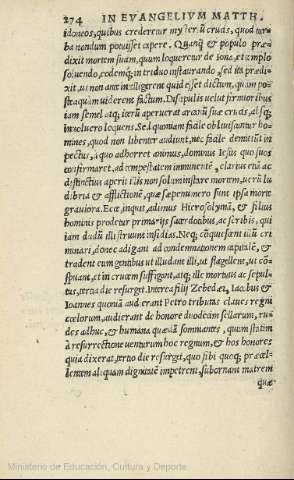 274 IN EVANGELIVM MATTH.
idoneos, quibus crederetur myster.ũ crucis, quod tur
ba nondum potuisset capere. Quanq̃ & populo præ
dixit mortem suam, quum loqueretur de Iona, et templo
soluendo, eodemq; in triduo instaurando, sed ita prædi-
xit, ut non ante intelligerent quid esset dictum, quam po-
stea quàm uiderent factum. Discipulis uelut firmioribus
iam semel atq; iterũ aperuerat arcanũ suæ crucis, absq;
inuolucro loquens. Sed quoniam facile obliuiscantur ho-
mines, quod non libenter audiunt, nec facile demittũt in
pectus, a quo abhorret animus, dominus Iesus quo suos
confirmaret, ad tempestatem imminentẽ, clarius etiã ac
distinctius aperit illis non solum instare mortem, uerũ lu
dibria & afflictionẽ, quæ sæpenumero sunt ipsa morte
grauiora. Ecce inquit, adimus Hierosolymã, & filius
hominis prodetur primarijs sacerdotibus, ac scribis, qui
iam dudũ illi struunt insidias. Neq; cõquiescẽt illũ cri
minari, donec adigant ad condemnationem capitalẽ, &
tradent eum gentibus ut illudant illi, ut flagellent, ut cõ-
spuant, et in crucem suffigant, atq; ille mortuus ac sepul-
tus, tertia die resurget. Interea filij Zebedæi, Iacobus &
Ioannes quoniã audierant Petro tributas claues regni
cœlorum, audierant de honore duodecim sellarum, ru-
des adhuc, & humana quædã somniantes, quum statim
à resurrectione uenturum hoc regnum, & hos honores
quia dixerat, tertio die resurget, quo sibi quoq; præcel-
lentem aliquam dignitatẽ impetrent, subornant matrem
quæ
Ministerio de Educación, Cultura y Deporte